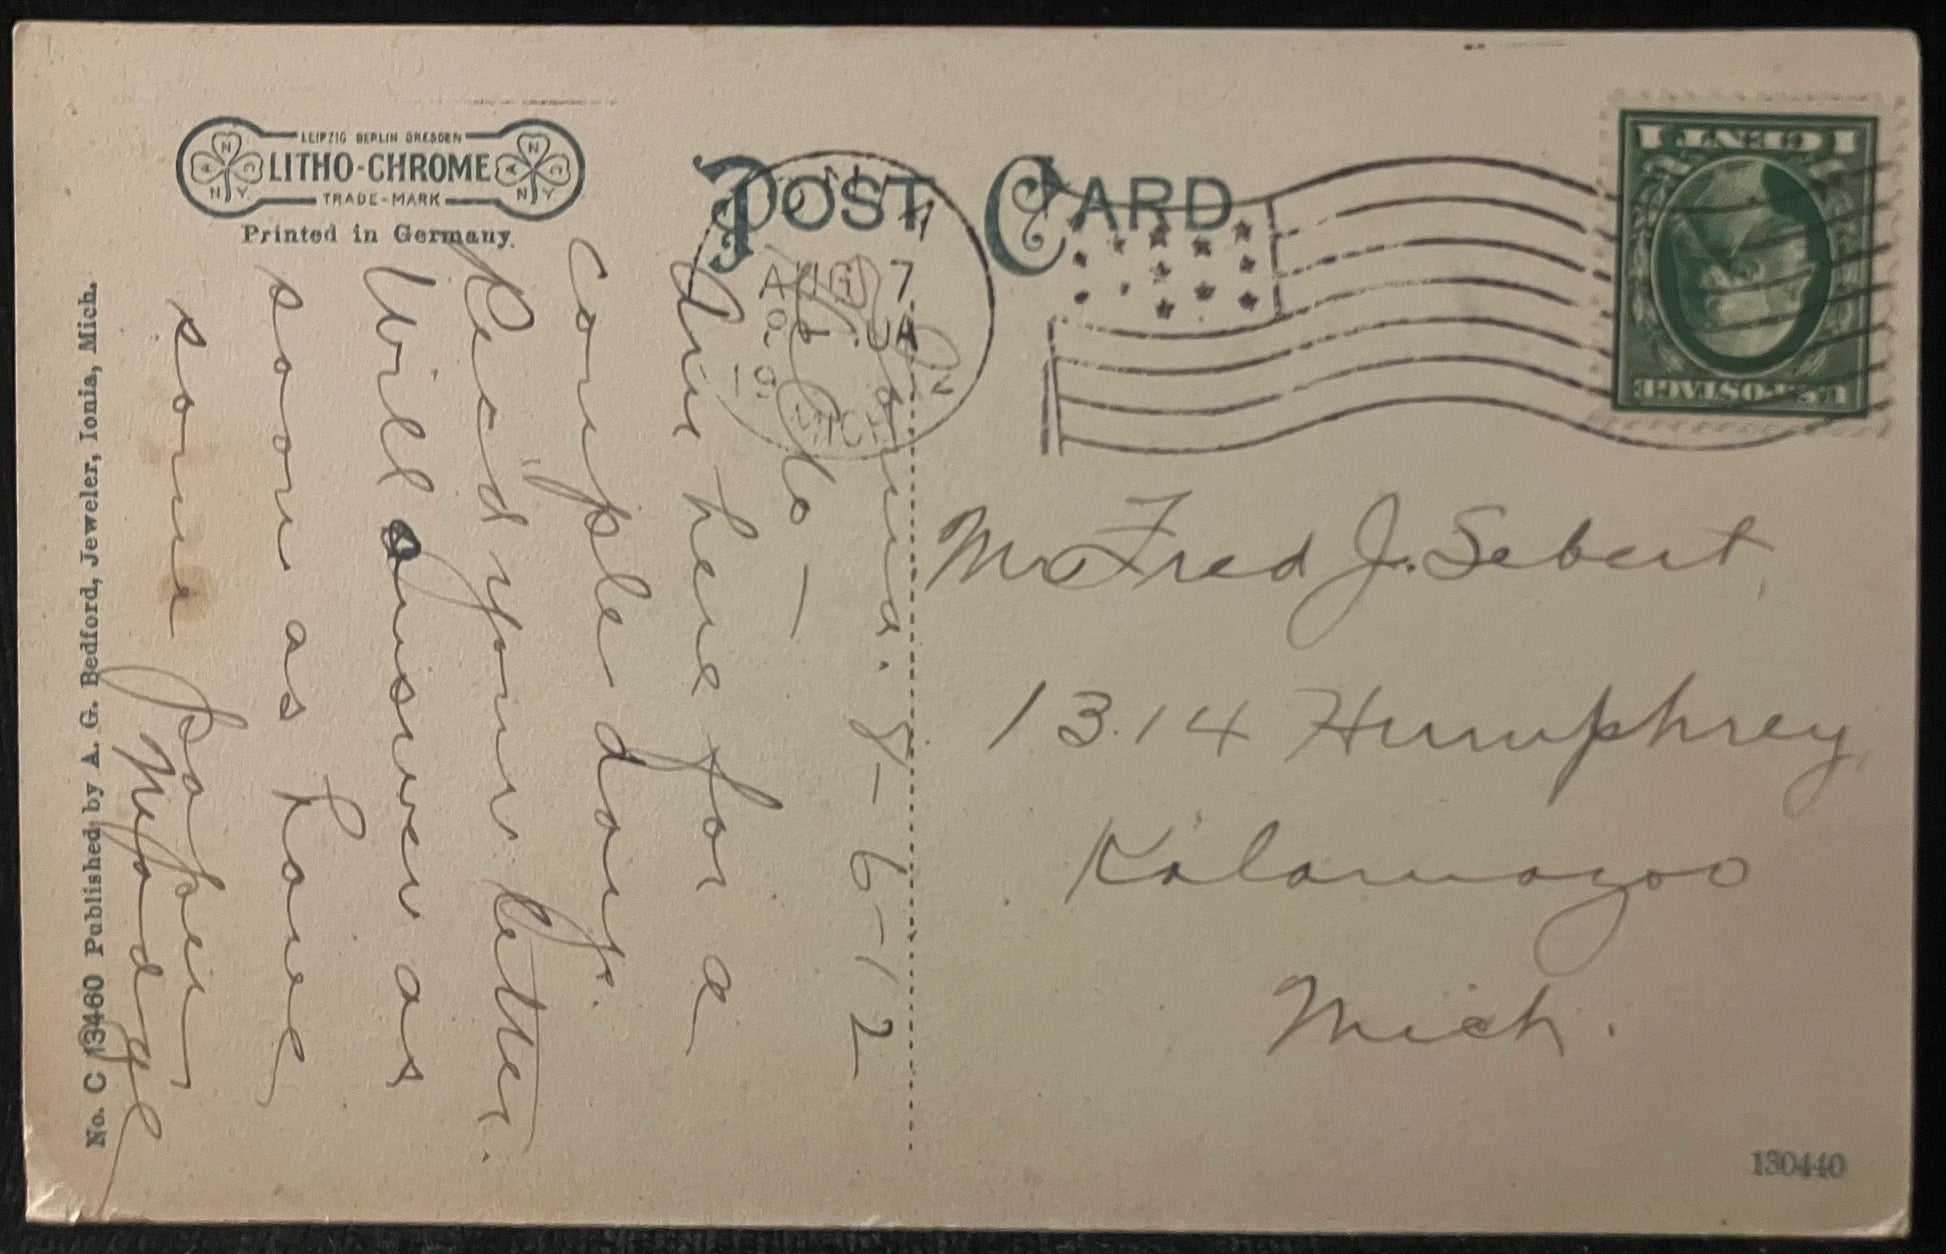 LEIPZIG BERLIN DRESDEN
LITHO-CHROME
TRADE-MARK
Printed in Germany.
POST CARD
AUG 7
MICH
1 CENT 1
U.S. POSTAGE
Ionia. 8-6-12
Am here for a
couple days.
Rec'd your letter.
Will answer as
soon as have
some paper
Madge
Mr Fred J. Sebert,
1314 Humphrey,
Kalamazoo
Mich.
No. C 13460 Published by A. G. Bedford, Jeweler, Ionia, Mich.
130440